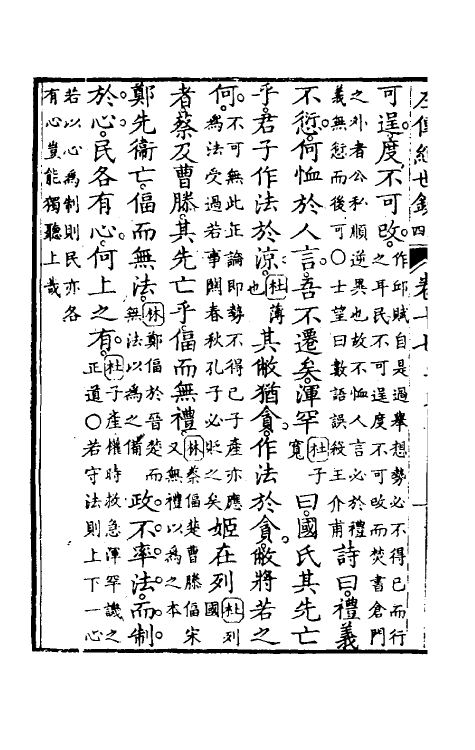 可逞度不可改作邱賦自是過舉想勢必不得已而行之耳民不可逞度不可改而焚書倉門
之外者公私順逆異也故不恤人言必於禮義無愆而後可〇士望曰數語誤殺王介甫詩曰禮義
不愆何恤於人言吾不遷矣渾罕杜子寬曰國氏其先亡
乎君子作法於涼杜薄也其敝猶貪作法於貪敝將若之
何不可無此正論即勢不得已子產亦應為法受過若事關春秋孔子必貶之矣姬在列杜列國
者蔡及曹滕其先亡乎偪而無禮林蔡偪楚曹滕偪宋又無禮以為之本
鄭先衛亡偪而無法林鄭偪於晉楚而無法以為之備政不率法而制
於心民各有心何上之有杜子產權時救急渾罕譏之正道〇若守法則上下一心
若以心為制則民亦各有心豈能獨聽上哉